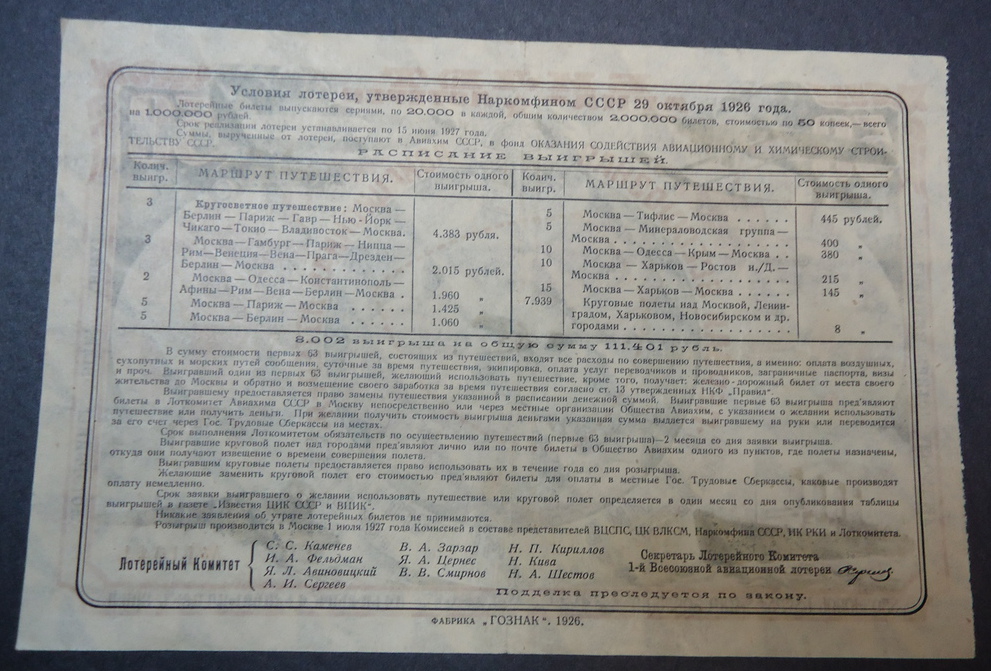 Условия лотереи, утвержденные Наркомфином СССР 29 октября 1926 года.
Лотерейные билеты выпускаются сериями, по 20.000 в каждой, общим количеством 2.000.000 билетов, стоимостью по 50 копеек,—всего
на 1.000.000 рублей.
Срок реализации лотереи устанавливается по 15 июня 1927 года.
Суммы, вырученные от лотереи, поступают в Авиахим СССР, в фонд ОКАЗАНИЯ СОДЕЙСТВИЯ АВИАЦИОННОМУ И ХИМИЧЕСКОМУ СТРОИ-
ТЕЛЬСТВУ СССР.
РАСПИСАНИЕ ВЫИГРЫШЕЙ.
Колич. выигр. МАРШРУТ ПУТЕШЕСТВИЯ. Стоимость одного выигрыша.
3 Кругосветное путешествие: Москва—
Берлин—Париж—Гавр—Нью-Йорк—
Чикаго—Токио—Владивосток—Москва. 4.383 рубля.
3 Москва—Гамбург—Париж—Ницца—
Рим—Венеция—Вена—Прага—Дрезден—
Берлин—Москва . . . . . . . . . . . 2.015 рублей.
2 Москва—Одесса—Константинополь—
Афины—Рим—Вена—Берлин—Москва . 1.960 „
5 Москва—Париж—Москва . . . . . . 1.425 „
5 Москва—Берлин—Москва . . . . . . 1.060 „
Колич. выигр. МАРШРУТ ПУТЕШЕСТВИЯ. Стоимость одного выигрыша.
5 Москва—Тифлис—Москва . . . . . . 445 рублей.
5 Москва—Минераловодская группа—
Москва . . . . . . . . . . . . . . . . 400 „
10 Москва—Одесса—Крым—Москва . . 380 „
10 Москва—Харьков—Ростов н./Д.—
Москва . . . . . . . . . . . . . . . . 215 „
15 Москва—Харьков—Москва . . . . . . 145 „
7.939 Круговые полеты над Москвой, Ленин-
градом, Харьковом, Новосибирском и др.
городами . . . . . . . . . . . . . . . . 8 „
8.002 выигрыша на общую сумму 111.401 рубль.
В сумму стоимости первых 63 выигрышей, состоящих из путешествий, входят все расходы по совершению путешествия, а именно: оплата воздушных,
сухопутных и морских путей сообщения, суточные за время путешествия, экипировка, оплата услуг переводчиков и проводников, заграничные паспорта, визы
и проч. Выигравший один из первых 63 выигрышей, желающий использовать путешествие, кроме того, получает: железно-дорожный билет от места своего
жительства до Москвы и обратно и возмещение своего заработка за время путешествия согласно ст. 13 утвержденных НКФ „Правил".
Выигравшему предоставляется право замены путешествия указанной в расписании денежной суммой. Выигравшие первые 63 выигрыша пред'являют
билеты в Лоткомитет Авиахима СССР в Москву непосредственно или через местные организации Общества Авиахим, с указанием о желании использовать
путешествие или получить деньги. При желании получить стоимость выигрыша деньгами указанная сумма выдается выигравшему на руки или переводится
за его счет через Гос. Трудовые Сберкассы на местах.
Срок выполнения Лоткомитетом обязательств по осуществлению путешествий (первые 63 выигрыша)—2 месяца со дня заявки выигрыша.
Выигравшие круговой полет над городами пред'являют лично или по почте билеты в Общество Авиахим одного из пунктов, где полеты назначены,
откуда они получают извещение о времени совершения полета.
Выигравшим круговые полеты предоставляется право использовать их в течение года со дня розыгрыша.
Желающие заменить круговой полет его стоимостью пред'являют билеты для оплаты в местные Гос. Трудовые Сберкассы, каковые производят
оплату немедленно.
Срок заявки выигравшего о желании использовать путешествие или круговой полет определяется в один месяц со дня опубликования таблицы
выигрышей в газете „Известия ЦИК СССР и ВЦИК".
Никакие заявления об утрате лотерейных билетов не принимаются.
Розыгрыш производится в Москве 1 июля 1927 года Комиссией в составе представителей ВЦСПС, ЦК ВЛКСМ, Наркомфина СССР, НК РКИ и Лоткомитета.
Лотерейный Комитет
С. С. Каменев
И. А. Фельдман
Я. Л. Авиновицкий
А. И. Сергеев
В. А. Зарзар
Я. А. Цернес
В. В. Смирнов
Н. П. Кириллов
Н. Кива
Н. А. Шестов
Секретарь Лотерейного Комитета
1-й Всесоюзной авиационной лотереи
Подделка преследуется по закону.
ФАБРИКА „ГОЗНАК". 1926.